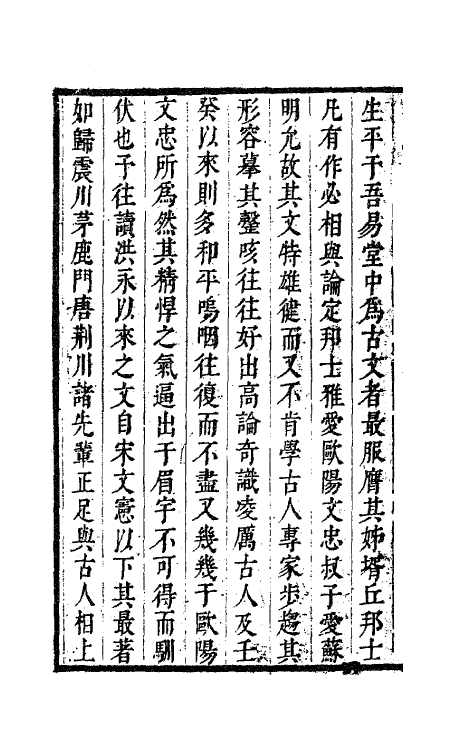 生平于吾易堂中爲古文者最服膺其姊壻丘邦士
凡有作必相與論定邦士雅愛歐陽文忠叔子愛蘇
明允故其文特雄健而又不肯學古人專家步趨其
形容摹其謦咳往往好出高論奇識凌厲古人及壬
癸以來則多和平嗚咽往復而不盡又幾幾于歐陽
文忠所爲然其精悍之氣逼出于眉宇不可得而馴
伏也予往讀洪永以來之文自宋文憲以下其最著
如歸震川茅鹿門唐荆川諸先輩正足與古人相上